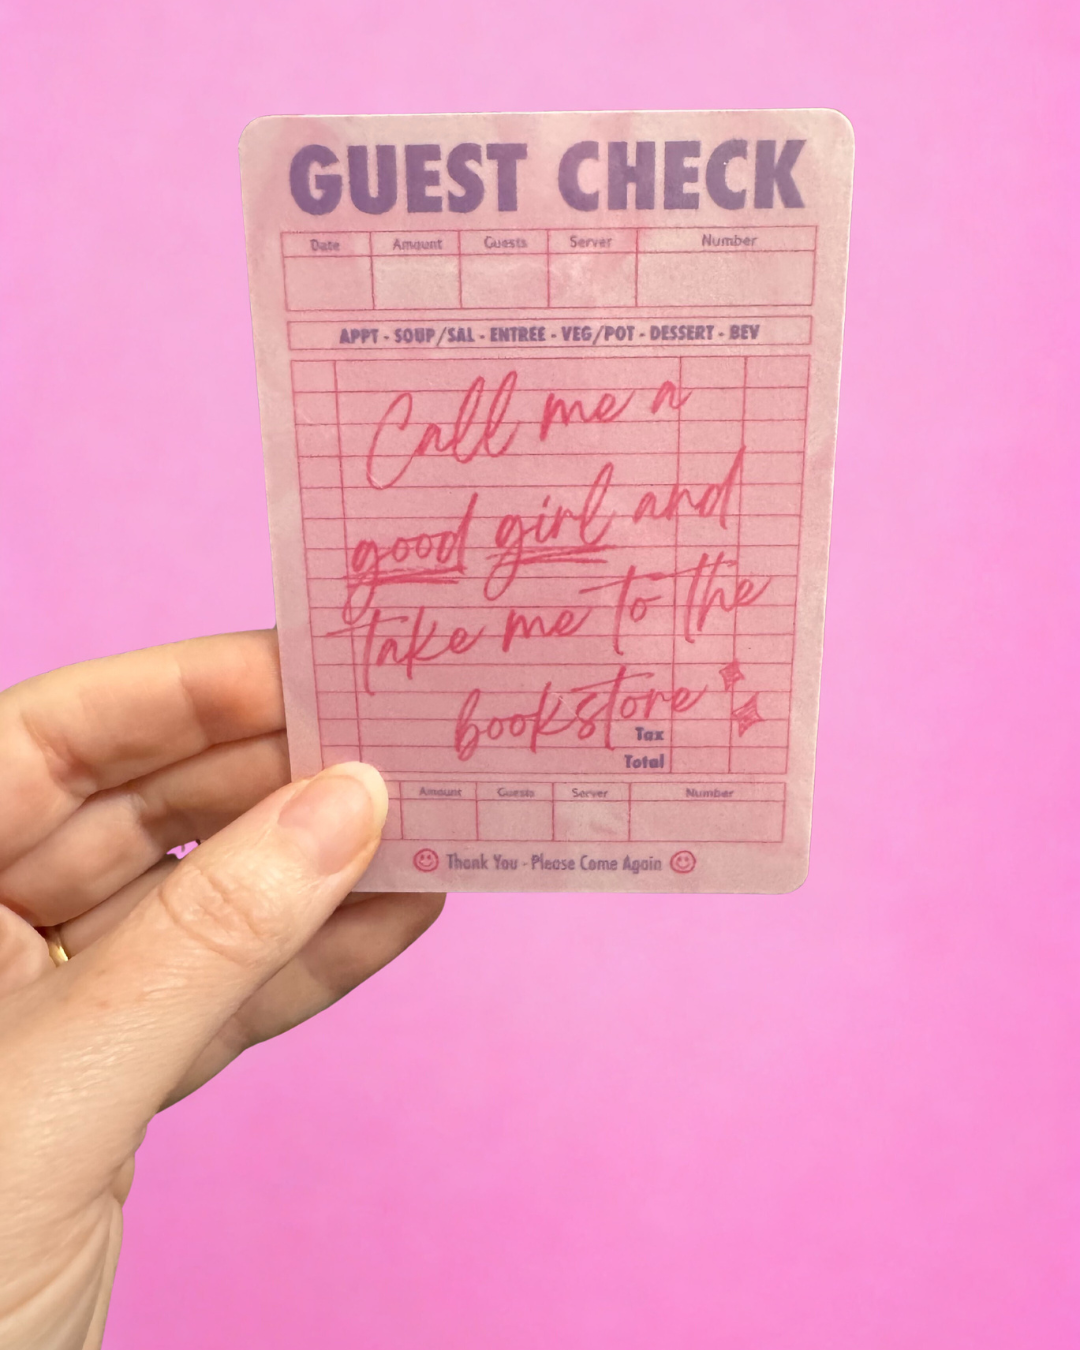 GUEST CHECK
Date Amount Guests Server Number
APPT - SOUP/SAL - ENTREE - VEG/POT - DESSERT - BEV
Call me a
good girl and
take me to the
bookstore
Tax
Total
Amount Guests Server Number
Thank You - Please Come Again